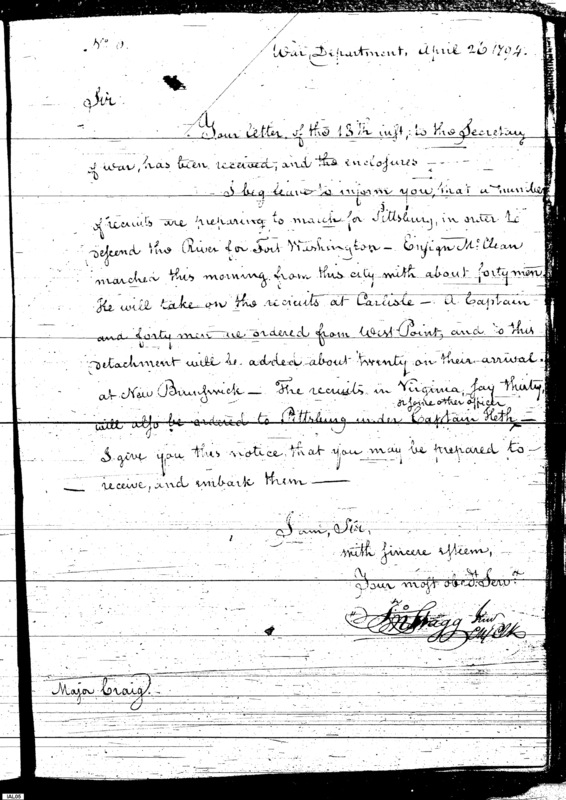 No.
War Department, April 26 1794.
Sir
Your letter of the 13th inst, to the Secretary
of war, has been received, and the enclosures
I beg leave to inform you, that a number
of recruits are preparing to march for Pittsburg, in order to
descend the River for Fort Washington — Ensign McClean
marched this morning from this city with about forty men.
He will take on the recruits at Carlisle — A Captain
and forty men are ordered from West Point, and to this
detachment will be added about twenty on their arrival
at New Brunswick — The recruits in Virginia, say thirty,
or some other officer
will also be ordered to Pittsburg under Captain Heth —
I give you this notice, that you may be prepared to
receive, and embark them —
I am, Sir,
with sincere esteem,
Your most obedt. Servt.
Jno Stagg Junr
Ch Clk
Major Craig.
IAL05